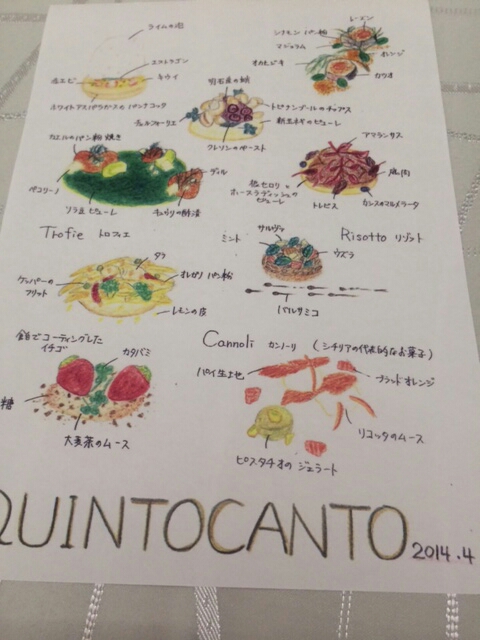 ライムの泡
エストラゴン
赤エビ
キウイ
ホワイトアスパラガスのパンナコッタ
シナモンパン粉
レーズン
マジョラム
オレンジ
オカヒジキ
カツオ
明石産の蛸
トピナンブールのチップス
チェルフォーリエ
新玉ネギのピューレ
クレソンのペースト
カエルのパン粉焼き
ディル
ペコリーノ
ソラ豆ピューレ
キュウリの酢漬
アマランサス
鹿肉
根セロリと
ホースラディッシュの
ピューレ
トレビス
カシスのマルメラータ
Trofie トロフィエ
タラ
オレガノパン粉
ケッパーの
フリット
レモンの皮
Risotto リゾット
サルヴィア
ミント
ウズラ
バルサミコ
飴でコーティングした
イチゴ
カタバミ
糖
大麦茶のムース
Cannoli カンノーリ (シチリアの代表的なお菓子)
パイ生地
ブラッドオレンジ
リコッタのムース
ピスタチオのジェラート
QUINTOCANTO 2014.4